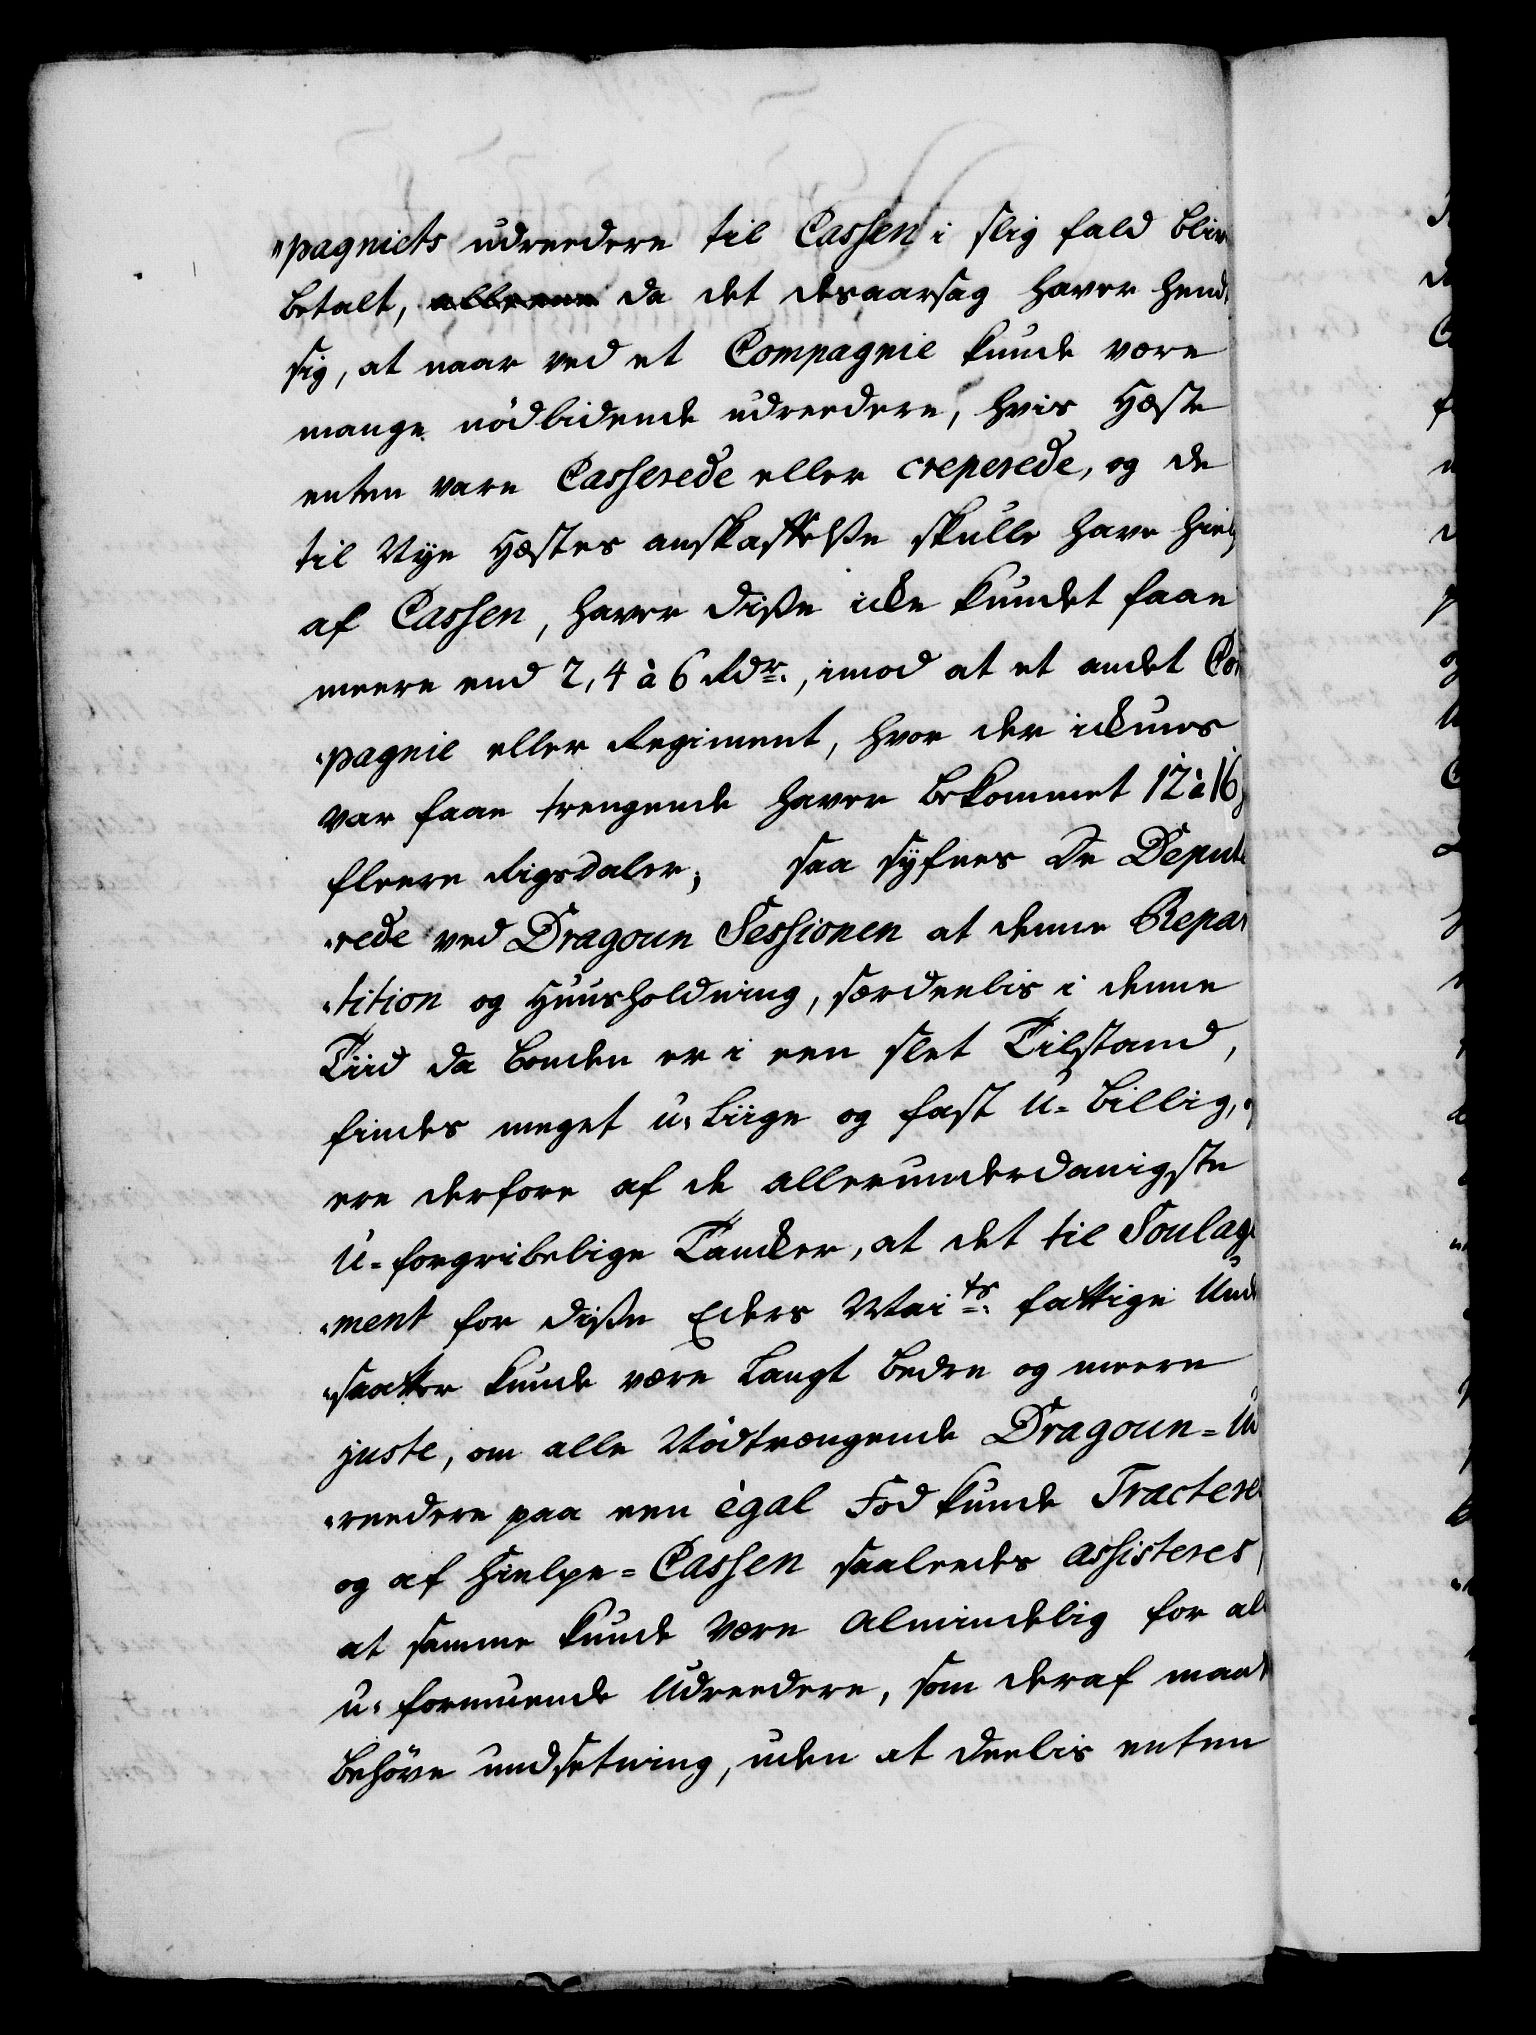 "pagniets udreedere til Cassen i slig fald bliv
betalt, da det desaarsag haver hend
sig, at naar ved et Compagnie kunde være
mange nödlidende udreedere, hvis Hæste
enten vare Casserede eller creperede, og de
til Nye Hæstes anskaffelße skulle have hielp
af Cassen, haver diße icke kundet faae
meere end 2, 4 à 6 Rdr., imod at et andet Com
"pagnie eller Regiment, hvor der ickuns
var faae trengende haver bekommet 12 à 16,
fleere Rigsdaler; saa syfnes De Depute
"rede ved Dragoun Sessionen at denne Repar
"tition og Huusholdning, særdeelis i denne
Tiid da bonden er i een slet Tilstand,
findes meget u-liige og fast U-billig,
ere derfore af de allerunderdanigste
U-forgribelige Tancker, at det til Soulage
"ment for diße Eders Maits. fattige Und
"saatter kunde være langt bedre og meere
juste, om alle Nödtrængende Dragoun-Ud
"reedere paa een égal Fod kunde Tractered
og af Hielpe-Cassen saaleedes assisteres,
at samme kunde være almindelig for all
u-formuende Udreedere, som deraf maat
behöve undsetning, uden at deelis enten